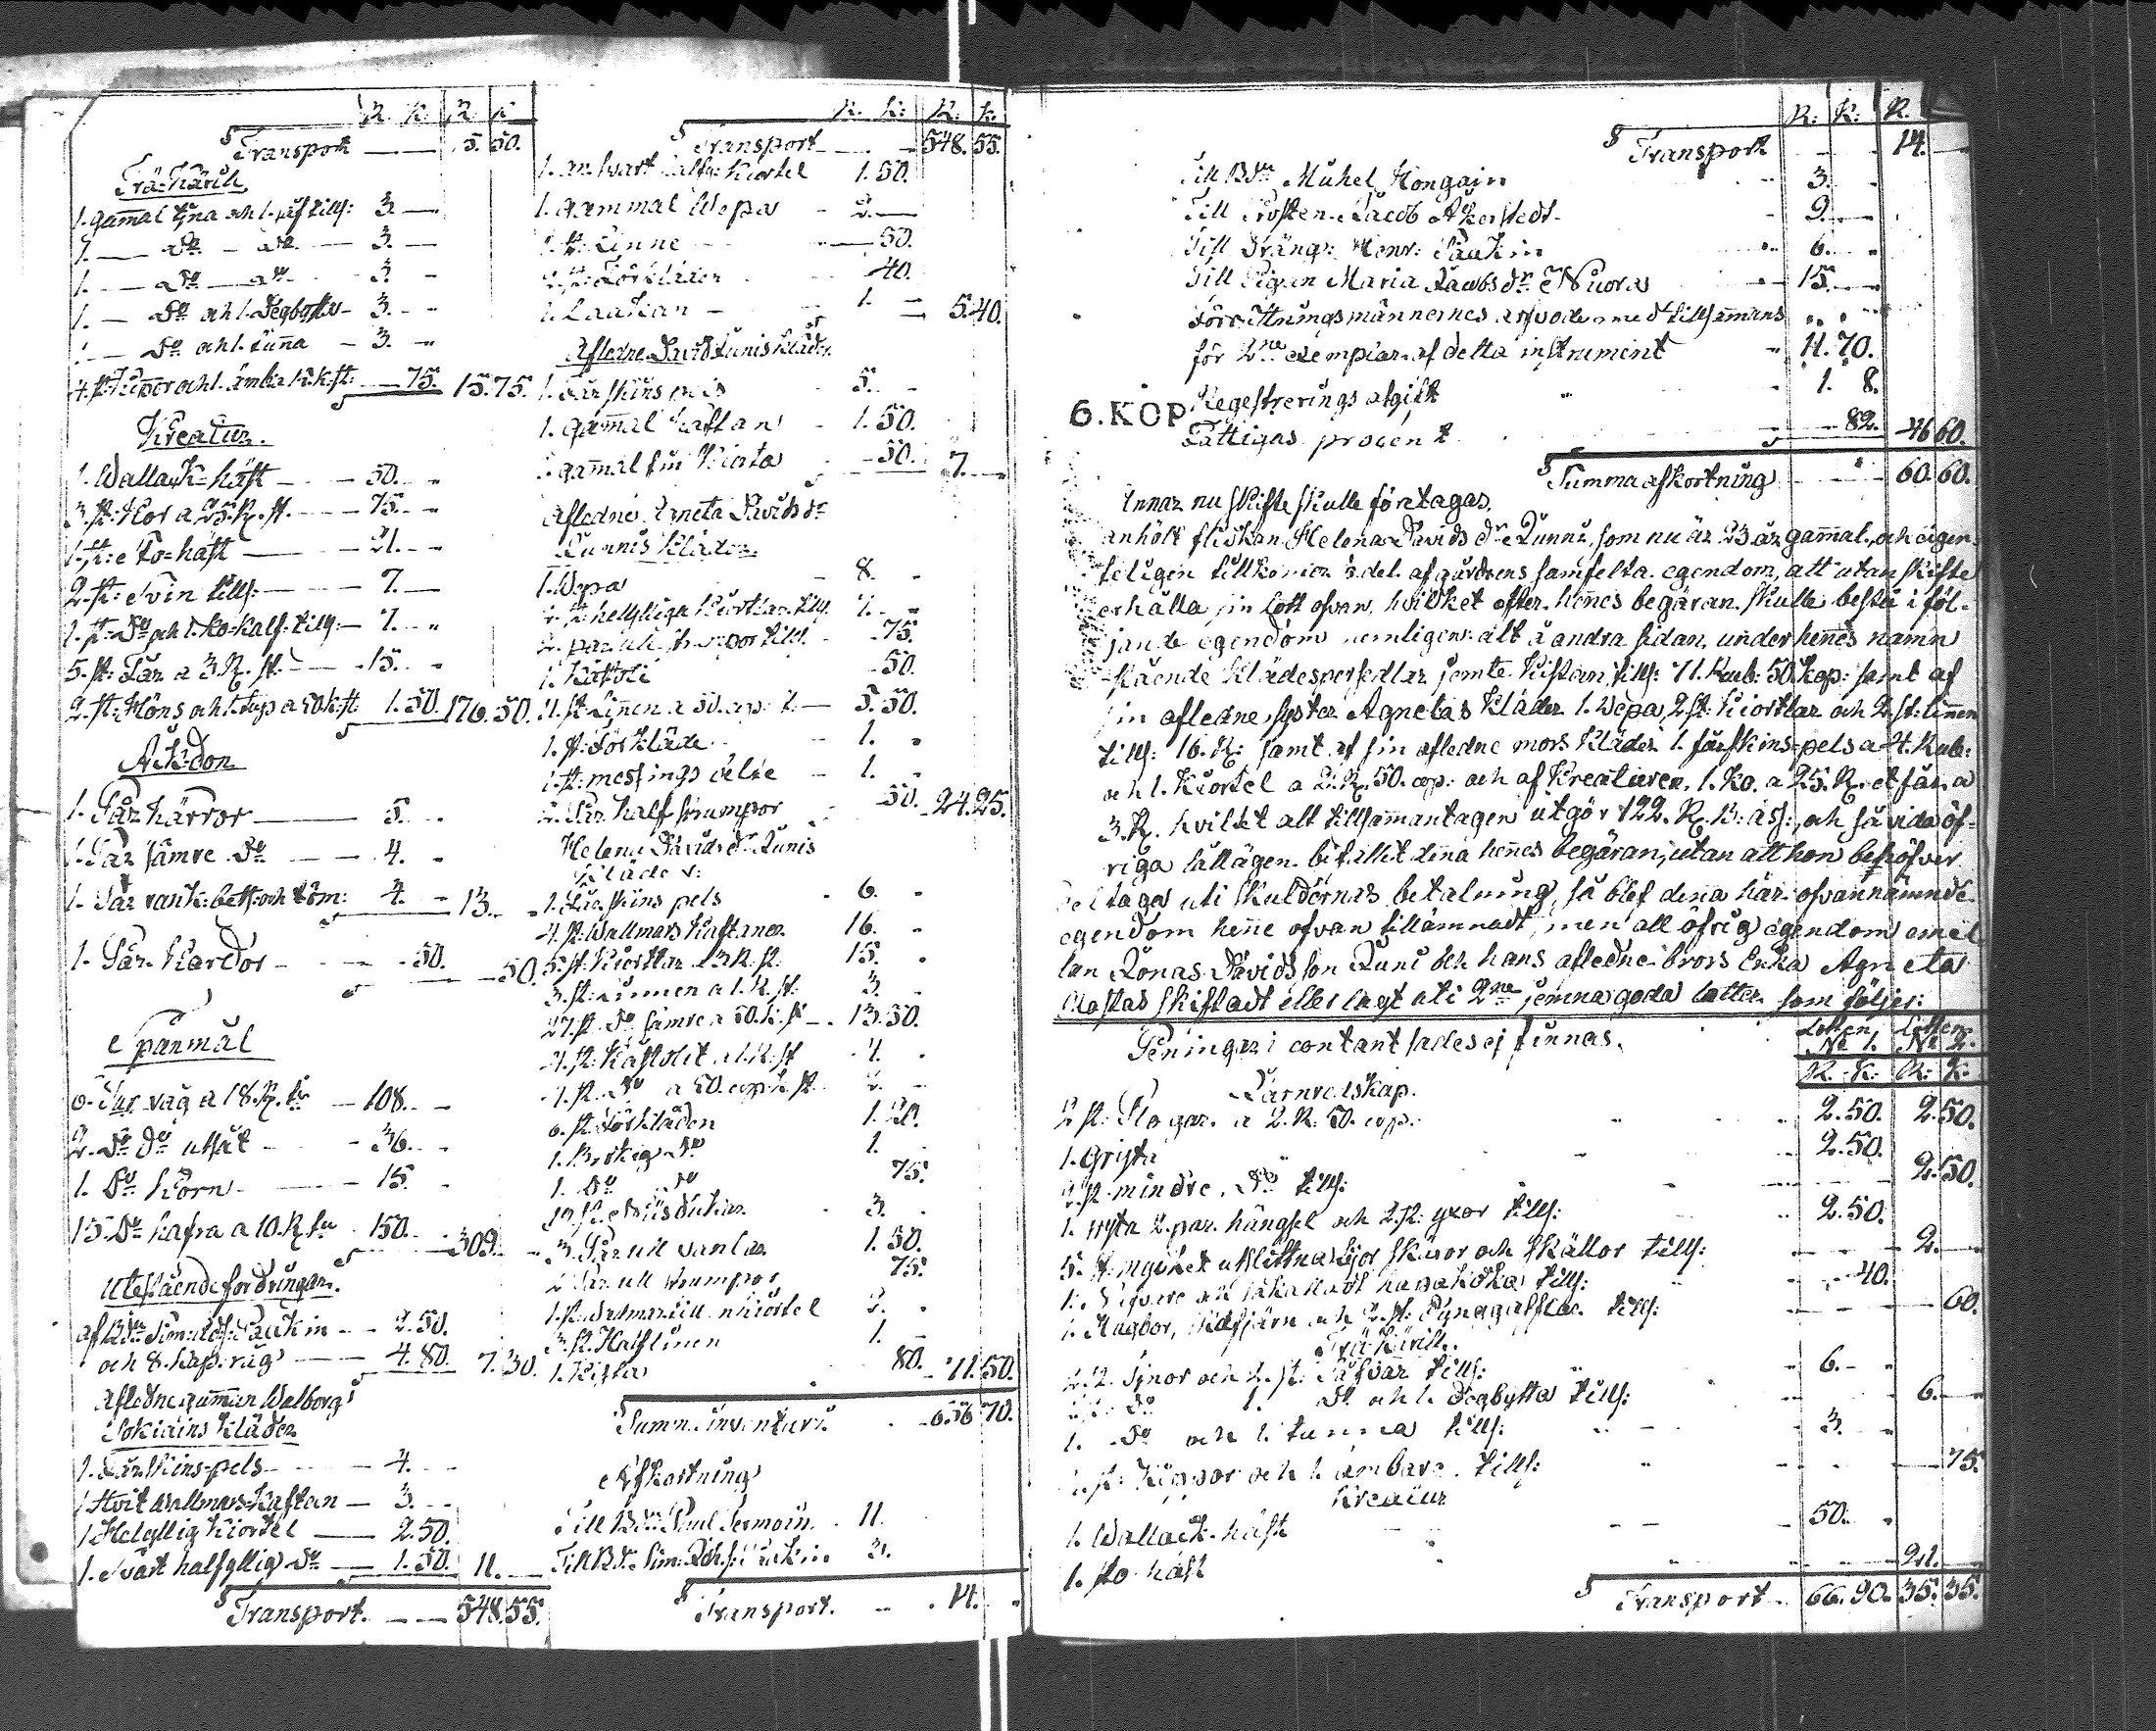 R. K. R. K
Transport — 5. 50.
Trä-Kärill
1. gamal tina och 1. såf tills: 3. —
1. — Do — do — 3. —
1. — Do — do — 3. -
1. — Do och 1. Degbytta - 3. -
1. — Do och 1. tunna - 3. -
4. st: Kippor och 1. ämbar K. st: — 75. 15. 75.
Kreatur.
1. Wallack-häst — 50. -
3. st: Kor a 25. R. st. — 75. -
1. st: Sto-häst — 21. -
2. st: Svin tills: — 7. —
1. st: Do och 1. ko-kalf: tills: — 7. -
5. st: Får a 3 R. st. — 15. -
2. st: Höns och 1. tupp a 50 k. st: 1. 50. 176. 50.
Åkdon
1. Par kärror — 5. -
1. Par sämre Do — 4. -
1. Par rank: bett: och töm: 4. - 13. -
1. Par Kardor — 50. — 50.
Spanmål
6. Tur råg a 18. R. tr — 108. -
2. Do Do utsåt — 36. -
1. Do Korn — 15. -
15. Do hafra a 10. R. tr 150. — 309. -
Utestående fordringar.
af Bdn Sim: Paukin — 2. 50.
och 8. kap. råg — 4. 80. 7. 30.
Afledne gumman Walborg
Sokiains Kläder
1. Fårskins-pels — 4. -
1 Hvit wallmars-Kaftan — 3. -
1 Helyllig Kiortel — 2. 50.
1. Svart halfyllig Do — 1. 50. 11. —
Transport. — 548. 55.
R. K: R. K.
Transport — 548. 55.
1. Svart halfy: Kiortel 1. 50.
1. gammal Wepa - 2. —
1. st: Linne — 50.
st: Förkläden 40.
1. Laakan - 1. — 5. 40.
Afledne David Lunis Kläder
1. Fårskins pels 5. -
1. gamal kaftan 1. 50.
1. gamal fin Skiorta - 50. 7. —
Afledne Agneta Davids dr
Lunnis Kläder
1. Wepa - 8. -
2. st: helylliga kiortlar tills. 7. -
2. par ull strumpor tills. - 75.
50.
11. st Linnen a 50. cop: st. — 5. 50.
1. st: förkläde - 1. -
1. st: messings bälte — 1. -
2. Par half strumpor 50. 24. 25.
Helena Davids dr Lunis
Kläder:
1. Fårskins pels - 6. -
4. st. Wallmars kaftaner 16. -
5. st: Kiortlar a 3 R. st. 15. -
3. st: Linnen a 1. R. st: 3. -
27. st. Do sämre a 50. k. st - 13. 50.
a 1. R. st
st. Do a 50. cop: st. 2. -
6. st. Förkläden 1. 20.
1. Brokig Do 1.
1. Do Do 75.
3. -
3. Par ull vantar 1. 50.
2 Par ull strumpor 75.
2. -
3. st. Half linnen 1. -
1. Kista 80. 71. 50.
Summa inventarii. 656. 70.
Afkortning
Till Bdn Paul Termoin. 11.
Till Bdn Sim: Paukin 3.
Transport. - 14. -
R: K: R.
Transport - 14. —
Till Bdn Mickel Hongain 3. -
Till Prosten Jacob Åkerstedt - 9. - .
Till Dräng: Henr: Paukin 6. -
Till Pigan Maria Jacobs dr Nuora 15. -
Förrättningsmännernes arfvode med tillsammans
för 2ne exemplar af detta instrument 11. 70.
6. KOP
Regestrerings afgift 1. 8.
Fattigas procent 82. 46. 60.
Summa afkortning 60. 60.
Innan nu skifte skulle företagas,
anhölt flickan Helena Davids dr Lunni, som nu är 23 år gammal, och egen-
teligen tillkommer del af gårdsens samfelta egendom, att utan skifte
erhålla sin lott ofvan, hvilket efter hennes begäran skulle bestå i föl-
jande egendom nemligen: allt å andra sidan under hennes namn
stående Klädespersedlar jemte Kistan, tills: 71. Rub: 50. Kop: samt af
sin afledne syster Agnetas Kläder 1. Wepa, 2. st: Kiortlar och 2. st: linnen
tills: 16. R: samt af sin afledne mors Kläder 1. fårskins-pels a 4. Rub:
och 1. Kiortel a 2. R. 50. cop: och af Kreaturen 1. Ko. a 25. R. et får a
3. R. hvilket allt tillsammantagen utgör 122. R. B: ass:, och så vida öf-
riga bifallit denna hennes begäran, utan att hon
deltaga uti skuldernas betalning, så blef denna här ofvannämnde
egendom henne ofvan tillämnadt, men all öfrig egendom emel-
lan Jonas Davids son Luni och hans afledne brors Enka Agneta
skiftadt eller lagt uti 2ne jemna goda lotter som följer:
Peningar i contant sades ej finnas.
Lotten No 1. Lotten No 2.
R. K: R: K.
Järnredskap.
2 st: Plogar a 2. R. 50. cop. 2. 50. 2. 50.
1. Gryta 2. 50.
2. st. mindre Do tills: 2. 50.
1. gryta 2. par. hängsel och 2. st: yxor tills: 2. 50.
5. st. mycket utslittna Lijor skäror och skällor tills: 2. —
40.
tills: 60.
Trä Kärill.
2. Tinor och 2. st: Såfvar tills: 6. -
Do 1. Do och 1. Degbytta tills: 6. —
1. Do och 1. tunna tills: 3. -
st: Kippor och 1. ämbare tills: 75.
Kreatur
1. Wallack-häst 50. -
1. sto häst 21. —
Transport - 66. 90. 35. 35.